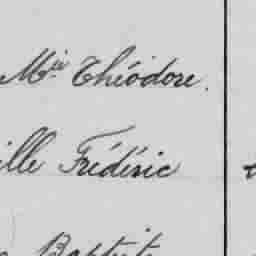 Mie Théodore.
ille Frédéric
Baptiste